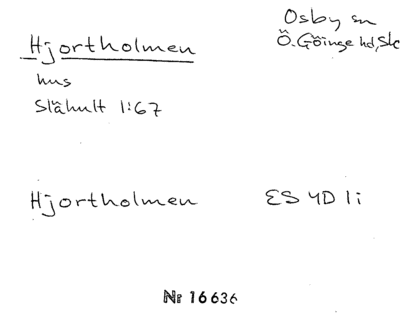 Hjortholmen
Osby sn
Ö. Göinge hd, Skc
hus
Slähult 1:67
Hjortholmen
ES 4D 1i
Nr 16636